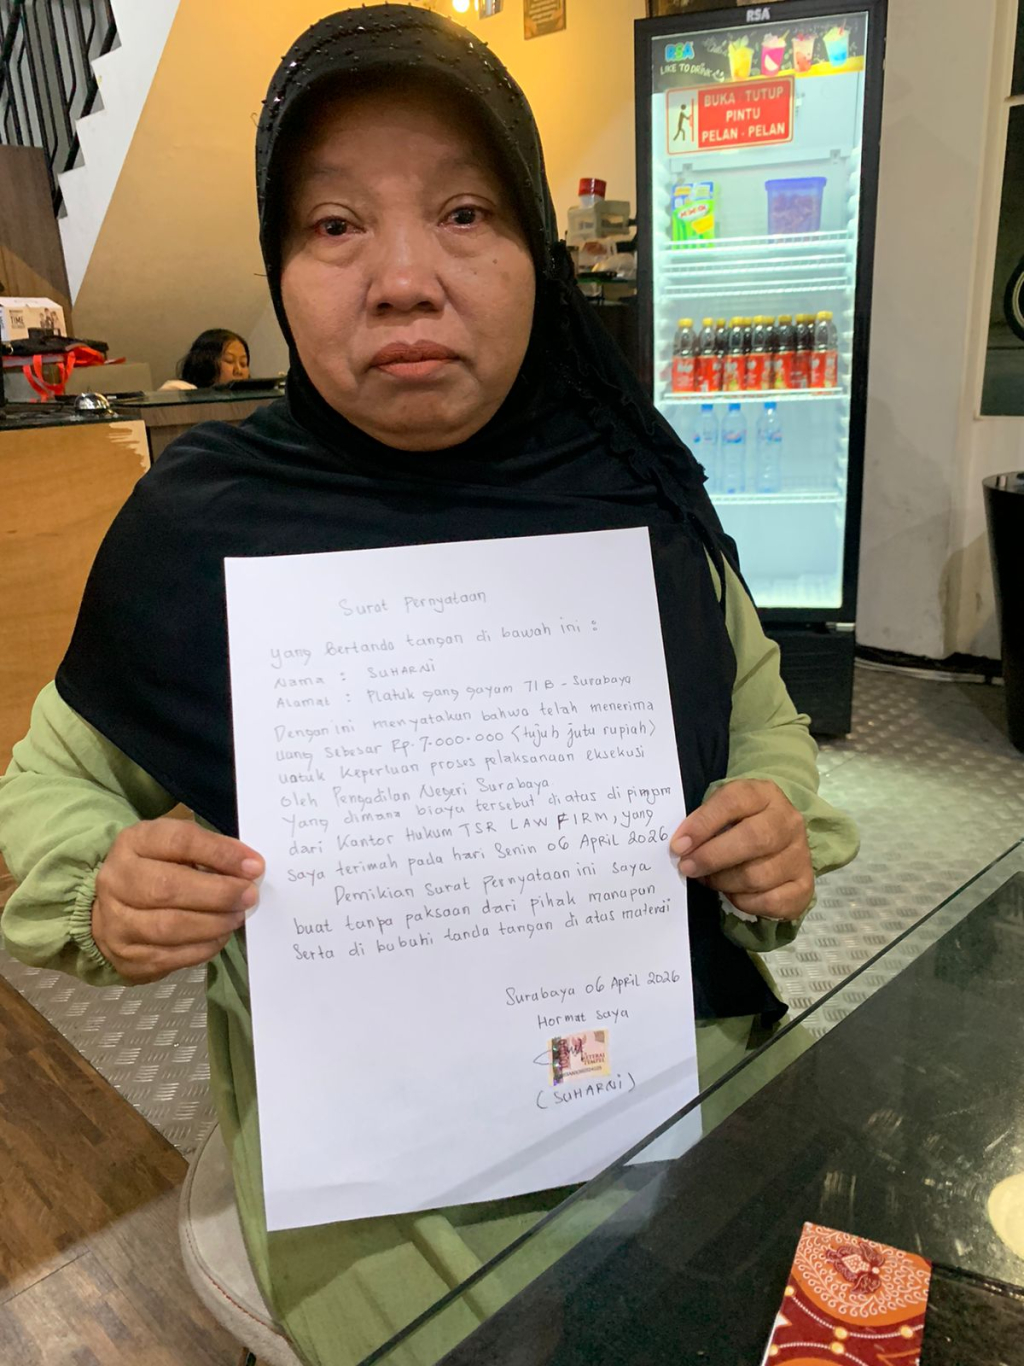 RSA
RSA
LIKE TO DRINK
BUKA - TUTUP
PINTU
PELAN - PELAN
TIME
Surat Pernyataan
yang Bertanda tangan di bawah ini :
Nama : SUHARNI
Alamat : Platuk gang gayam 71 B - Surabaya
Dengan ini menyatakan bahwa telah menerima
uang sebesar Rp. 7.000.000 (tujuh jutu rupiah)
untuk keperluan proses pelaksanaan eksekusi
oleh Pengadilan Negeri Surabaya.
Yang dimana biaya tersebut di atas di pinjam
dari Kantor Hukum TSR LAW FIRM, yang
saya terimah pada hari Senin 06 April 2026
Demikian Surat Pernyataan ini saya
buat tanpa paksaan dari pihak manapun
Serta di bubuhi tanda tangan di atas materai
Surabaya 06 April 2026
Hormat saya
METERAI
TEMPEL
(SUHARNI)